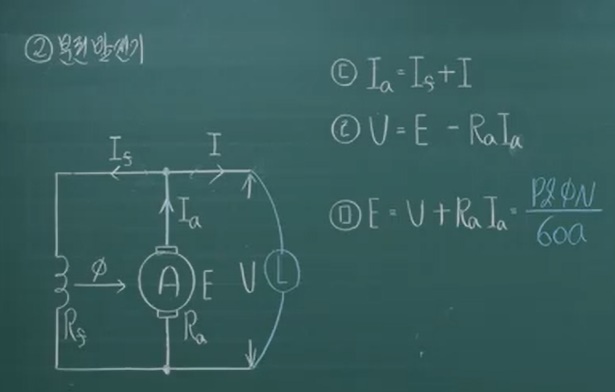 ② 분권발전기
ⓒ Iₐ = I_f + I
② V = E - RₐIₐ
ⓓ E = V + RₐIₐ = PZφN / 60a
I_f
I
Iₐ
φ
A
E
V
L
R_f
Rₐ